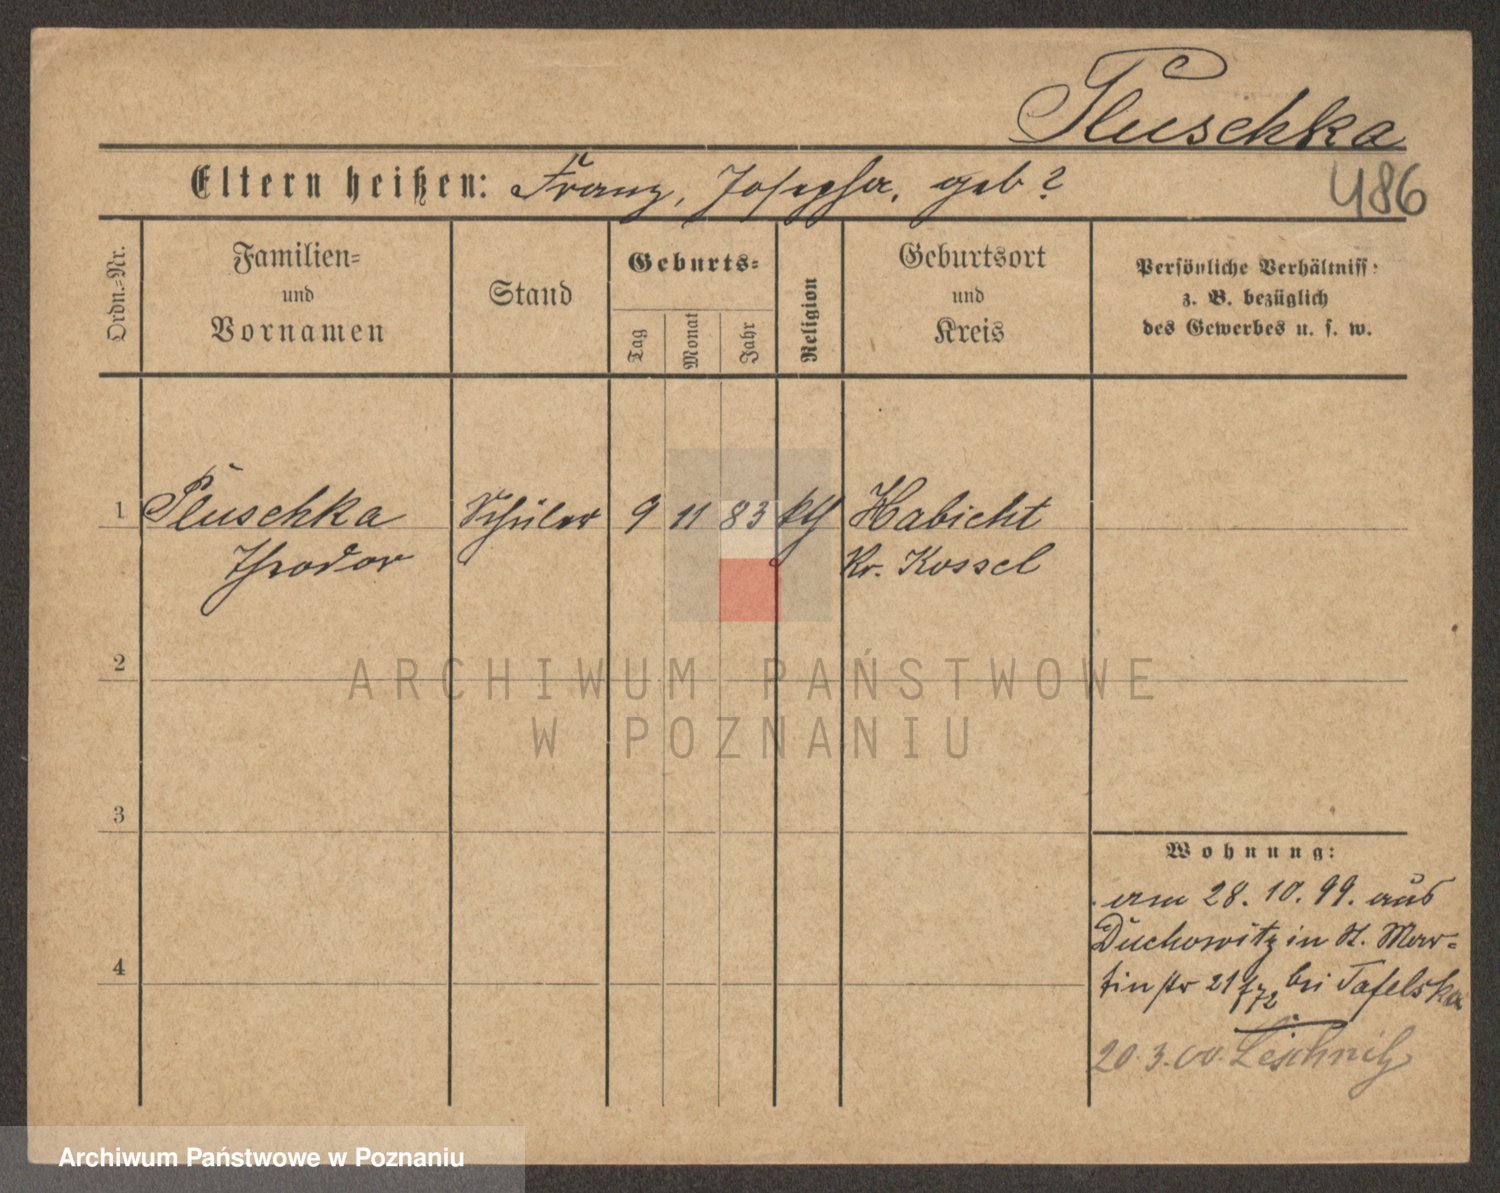 Pluschka
Eltern heißen: Franz, Josepha, geb?
486
Ordn.=Nr.
Familien=
und
Vornamen
Stand
Geburts=
Tag
Monat
Jahr
Religion
Geburtsort
und
Kreis
Persönliche Verhältniss:
z. B. bezüglich
des Gewerbes u. s. w.
1 Pluschka Schüler 9 11 83 kth Habicht
Theodor Kr. Kossel
2
ARCHIWUM PAŃSTWOWE
W POZNANIU
3
Wohnung:
am 28. 10. 99. aus
Duchowitz in St. Mar=
tinstr 21 bei Tafelska
4
20.3.00. Leschnitz
Archiwum Państwowe w Poznaniu